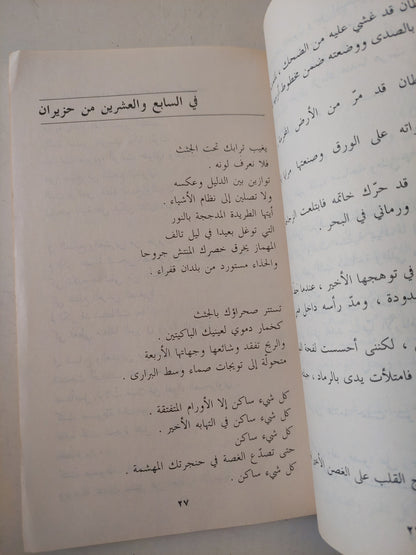 في السابع والعشرين من حزيران
يغيب ترابك تحت الجثث
فلا نعرف لونه .
توازين بين الدليل وعكسه
ولا تصلين إلى نظام الأشياء .
أيتها الطريدة المدججة بالنور
التي توغل بعيدا في ليل تالف
المهماز يخرق خصرك المنتش جروحا
والحذاء مستورد من بلدان فقراء .
تستتر صحراؤك بالجثث
كخمار دموي لعينيك الباكيتين .
والريح تفقد وشائعها وجهاتها الأربعة
متحولة إلى تويجات صماء وسط البرارى .
كل شيء ساكن إلا الأورام المتفتقة .
كل شيء ساكن في التهابه الأخير .
كل شيء ساكن
حتى تصدّع الغصة في حنجرتك المهشمة .
كل شيء ساكن .
٢٧
طان قد غشي عليه من الضحك ،
بالصدى ووضعته ضمن مخطوط
طان قد مرّ من الأرض
راته على الورق وصنعتها
قد حرّك خاتمه فابتلعت
ورماني في البحر .
في توهجها الأخير ، عندما
دودة ، ومدّ رأسه داخل
، لكننى أحسست
فامتلأت يدى بالرماد ،
القلب على الغصن